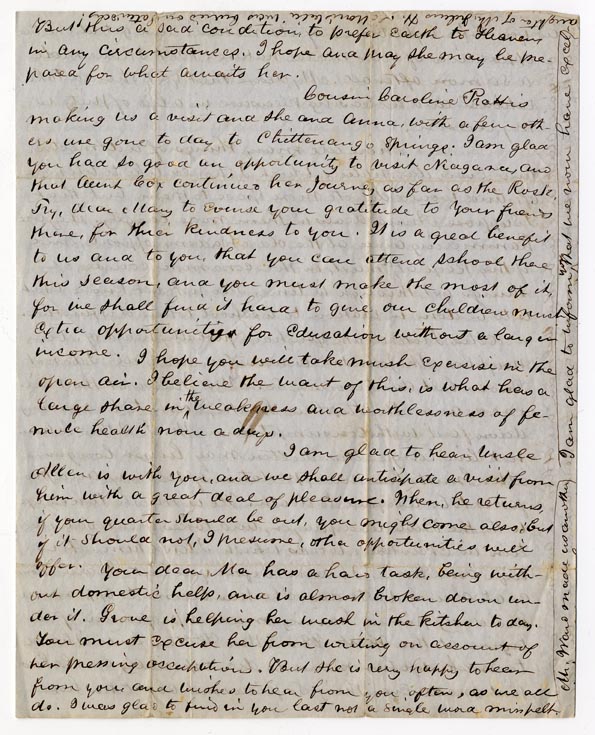 But this a sad condition, to prefer earth to Heaven
in any circumstances. I hope and pray she may be pre-
pared for what awaits her.
Cousin Caroline Pratt is
making us a visit and she and Anna, with a few oth-
ers are gone to day to Chittenango Springs. I am glad
you had so good an opportunity to visit Niagara, and
that Aunt Cox continued her Journey as far as the Rock
Try, dear Mary to evince your gratitude to your friends
there, for their kindness to you. It is a great benefit
to us and to you, that you can attend school there
this season, and you must make the most of it,
for we shall find it hard to give our children much
extra opportunity for education without a larger
income. I hope you will take much exercise in the
open air. I believe the want of this, is what has a
large share in the weakness and worthlessness of fe-
male health now a days.
I am glad to hear Uncle
Allen is with you, and we shall anticipate a visit from
him with a great deal of pleasure. When, he returns,
if your quarter should be out, you might come also; but
if it should not, I presume, other opportunities will
offer. Your dear Ma has a hard task, being with-
out domestic help, and is almost broken down un-
der it. Grove is helping her wash in the kitchen to day.
You must excuse her from writing on account of
her pressing occupation. But she is very happy to hear
from you and wishes to hear from you often, as we all
do. I was glad to find in you last not a single word mispelt.
I am glad to inform you that we now have
Mr. Ward made us another